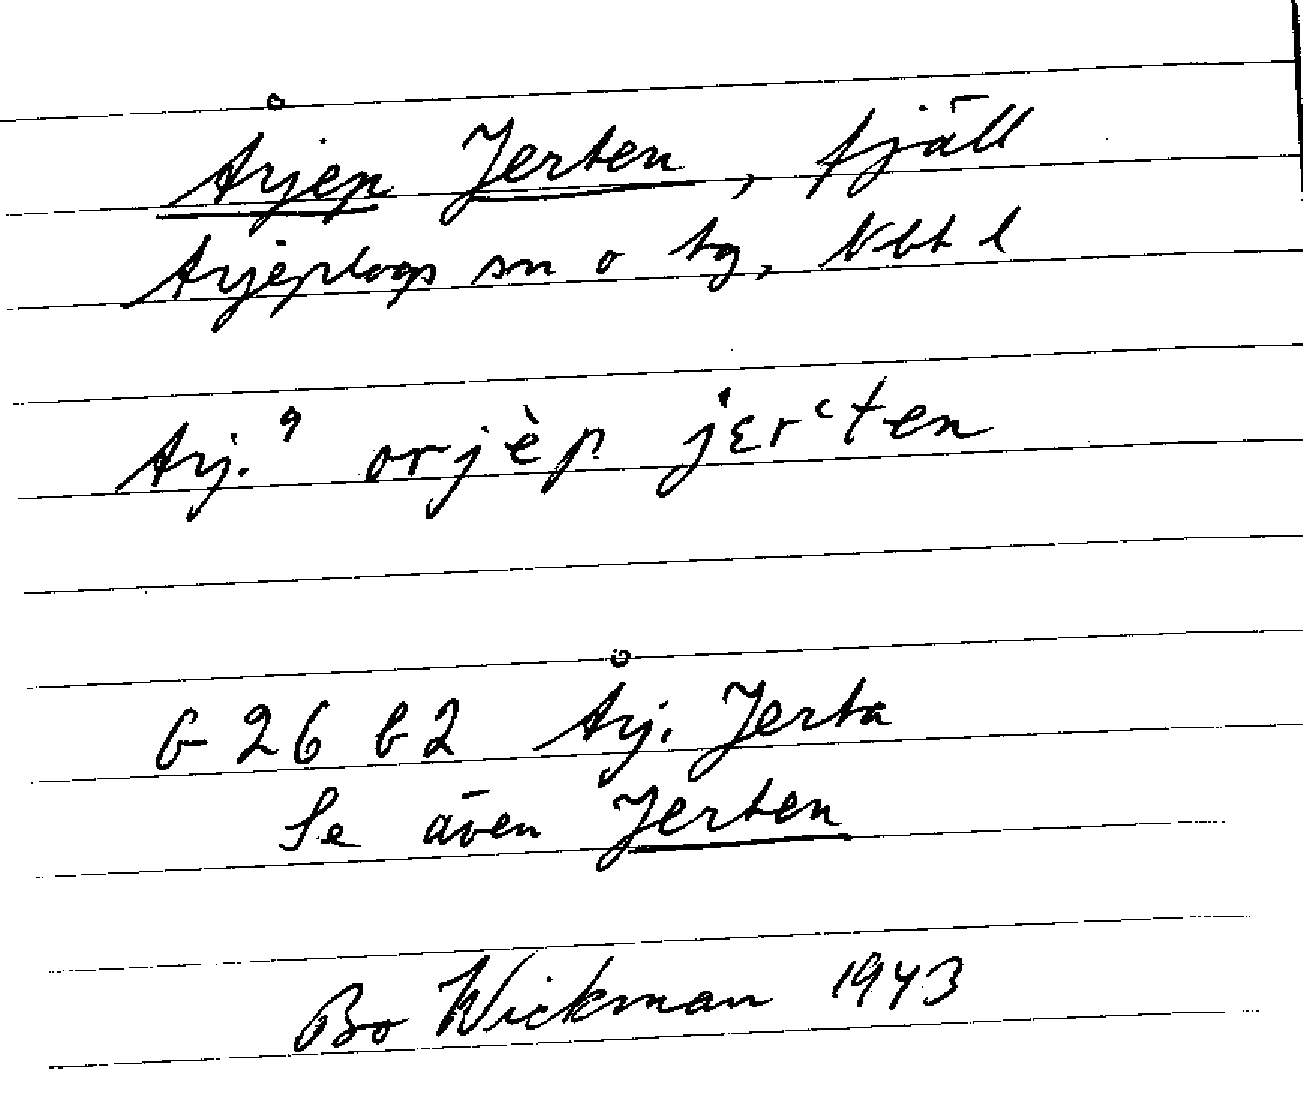 Årjep Jerten, fjäll
Arjeplogs sn o tg, Nbt l
Arj.⁹ orjèp jɛrʿten
G 26 b 2 Årj. Jerta
Se även Jerten
Bo Wickman 1943